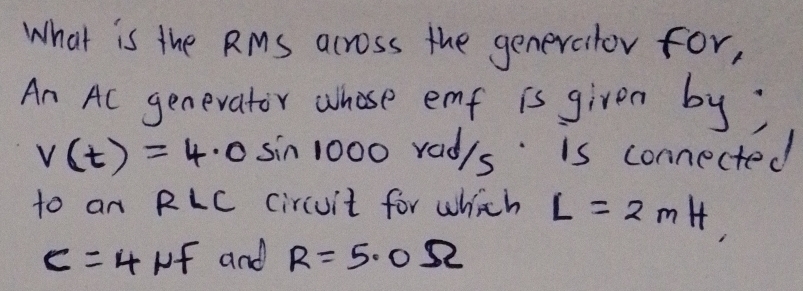 What is the RMS across the generator for,
An AC generator whose emf is given by;
v(t) = 4.0 sin 1000 rad/s. Is connected
to an RLC circuit for which L = 2 mH,
C = 4 μf and R = 5.0 Ω